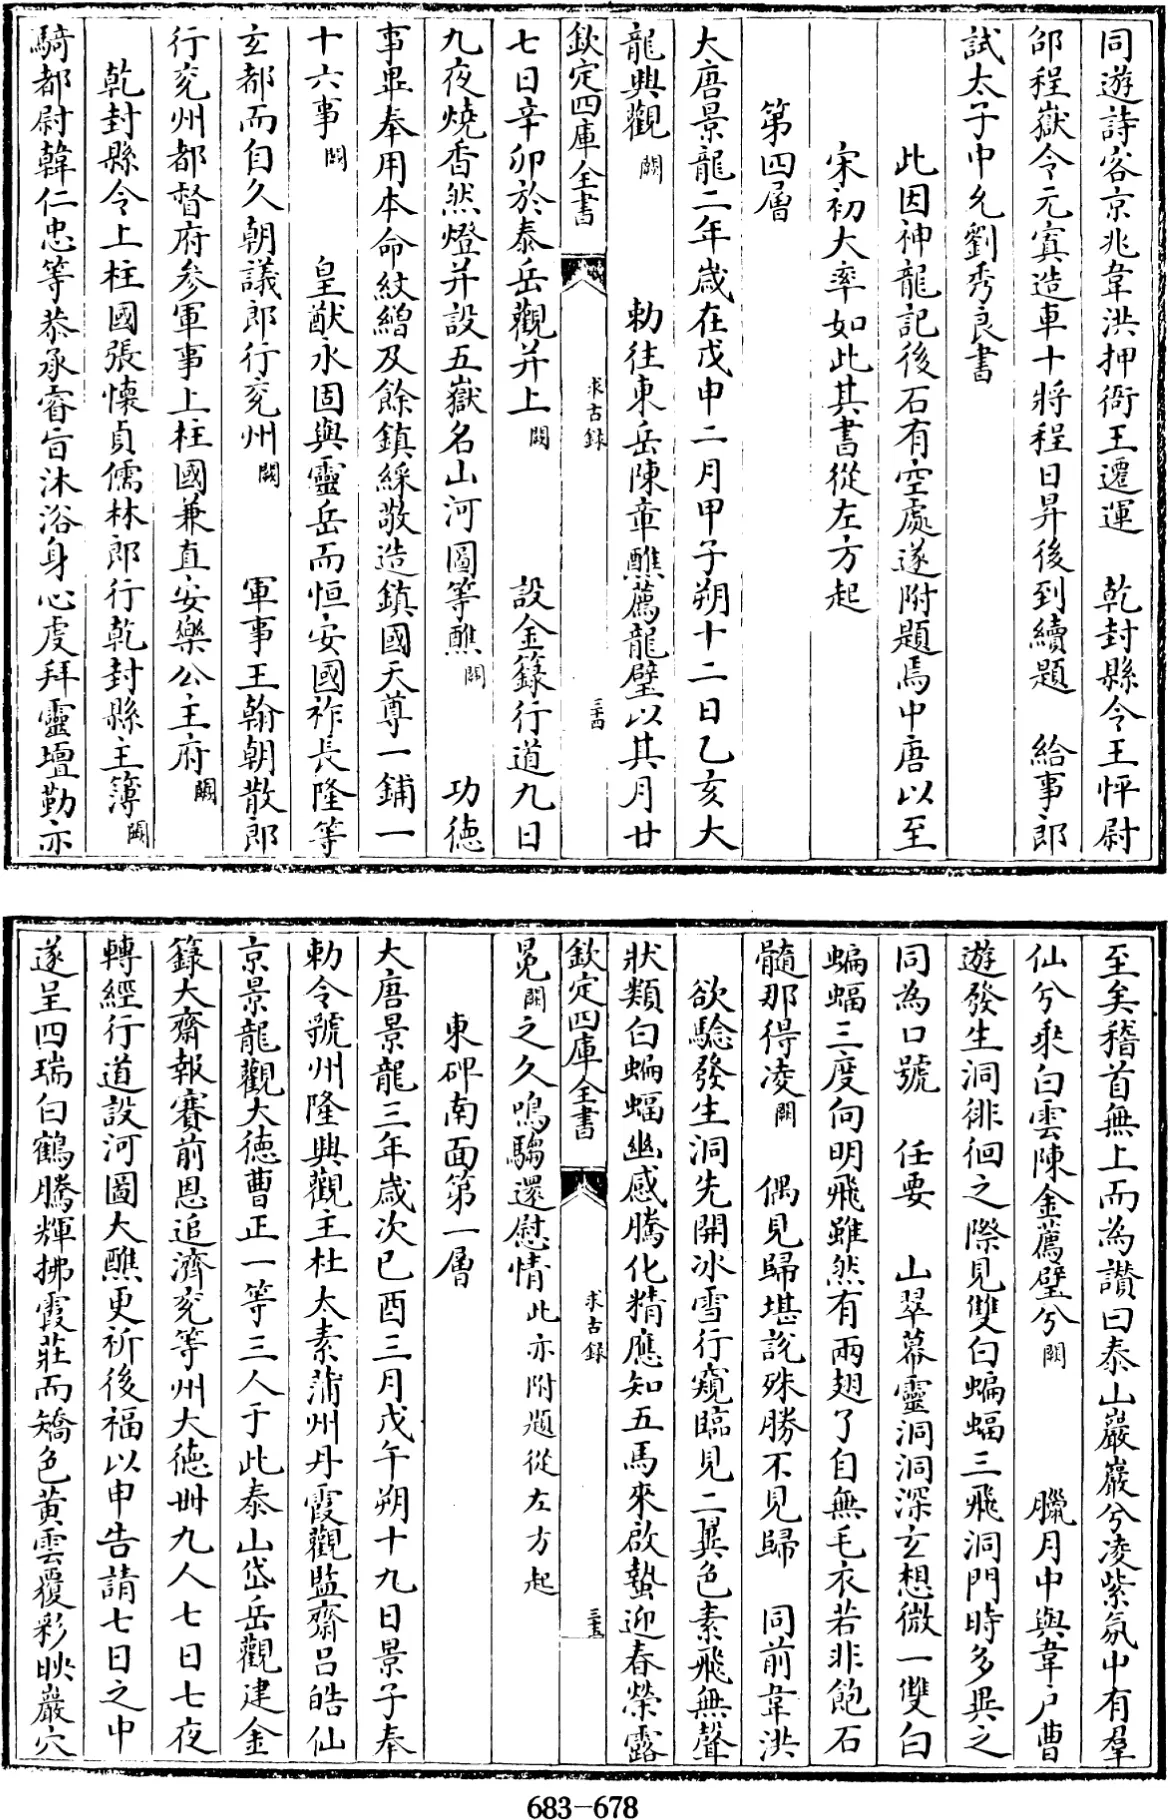 同遊詩客京兆韋洪押衙王遷運　乾封縣令王怦尉
邰程嶽令元寘造車十將程日昇後到續題　給事郎
試太子中允劉秀良書
此因神龍記後石有空處遂附題焉中唐以至
宋初大率如此其書從左方起
第四層
大唐景龍二年歲在戊申二月甲子朔十二日乙亥大
龍興觀闕　　勅往東岳陳章醮薦龍璧以其月廿
欽定四庫全書　求古錄　三十四
七日辛卯於泰岳觀并上闕　　設金籙行道九日
九夜燒香然燈并設五嶽名山河圖等醮闕　　功德
事畢奉用本命紋繒及餘鎮綵敬造鎮國天尊一鋪一
十六事闕　　皇猷永固與靈岳而恒安國祚長隆等
玄都而自久朝議郎行兖州闕　　軍事王翰朝散郎
行兖州都督府參軍事上柱國兼直安樂公主府闕
乾封縣令上柱國張懷貞儒林郎行乾封縣主簿闕
騎都尉韓仁忠等恭承睿旨沐浴身心虔拜靈壇勤亦
至矣稽首無上而為讃曰泰山巖巖兮凌紫氛中有羣
仙兮乘白雲陳金薦璧兮闕　　臘月中與韋户曹
遊發生洞徘徊之際見雙白蝙蝠三飛洞門時多異之
同為口號　任要　山翠幕靈洞洞深玄想微一雙白
蝙蝠三度向明飛雖然有兩翅了自無毛衣若非飽石
髓那得凌闕　偶見歸堪說殊勝不見歸　同前韋洪
欲驗發生洞先開冰雪行窺臨見二翼色素飛無聲
狀類白蝙蝠幽感騰化精應知五馬來啟蟄迎春榮露
欽定四庫全書　求古錄　三十五
冕闕之久鳴騶還慰情此亦附題從左方起
東碑南面第一層
大唐景龍三年歲次已酉三月戊午朔十九日景子奉
勅令虢州隆興觀主杜太素蒲州丹霞觀監齋吕皓仙
京景龍觀大德曹正一等三人于此泰山岱岳觀建金
籙大齋報賽前恩追濟兖等州大德卌九人七日七夜
轉經行道設河圖大醮更祈後福以申告請七日之中
遂呈四瑞白鶴騰輝拂霞莊而矯色黃雲覆彩映巖穴
683—678